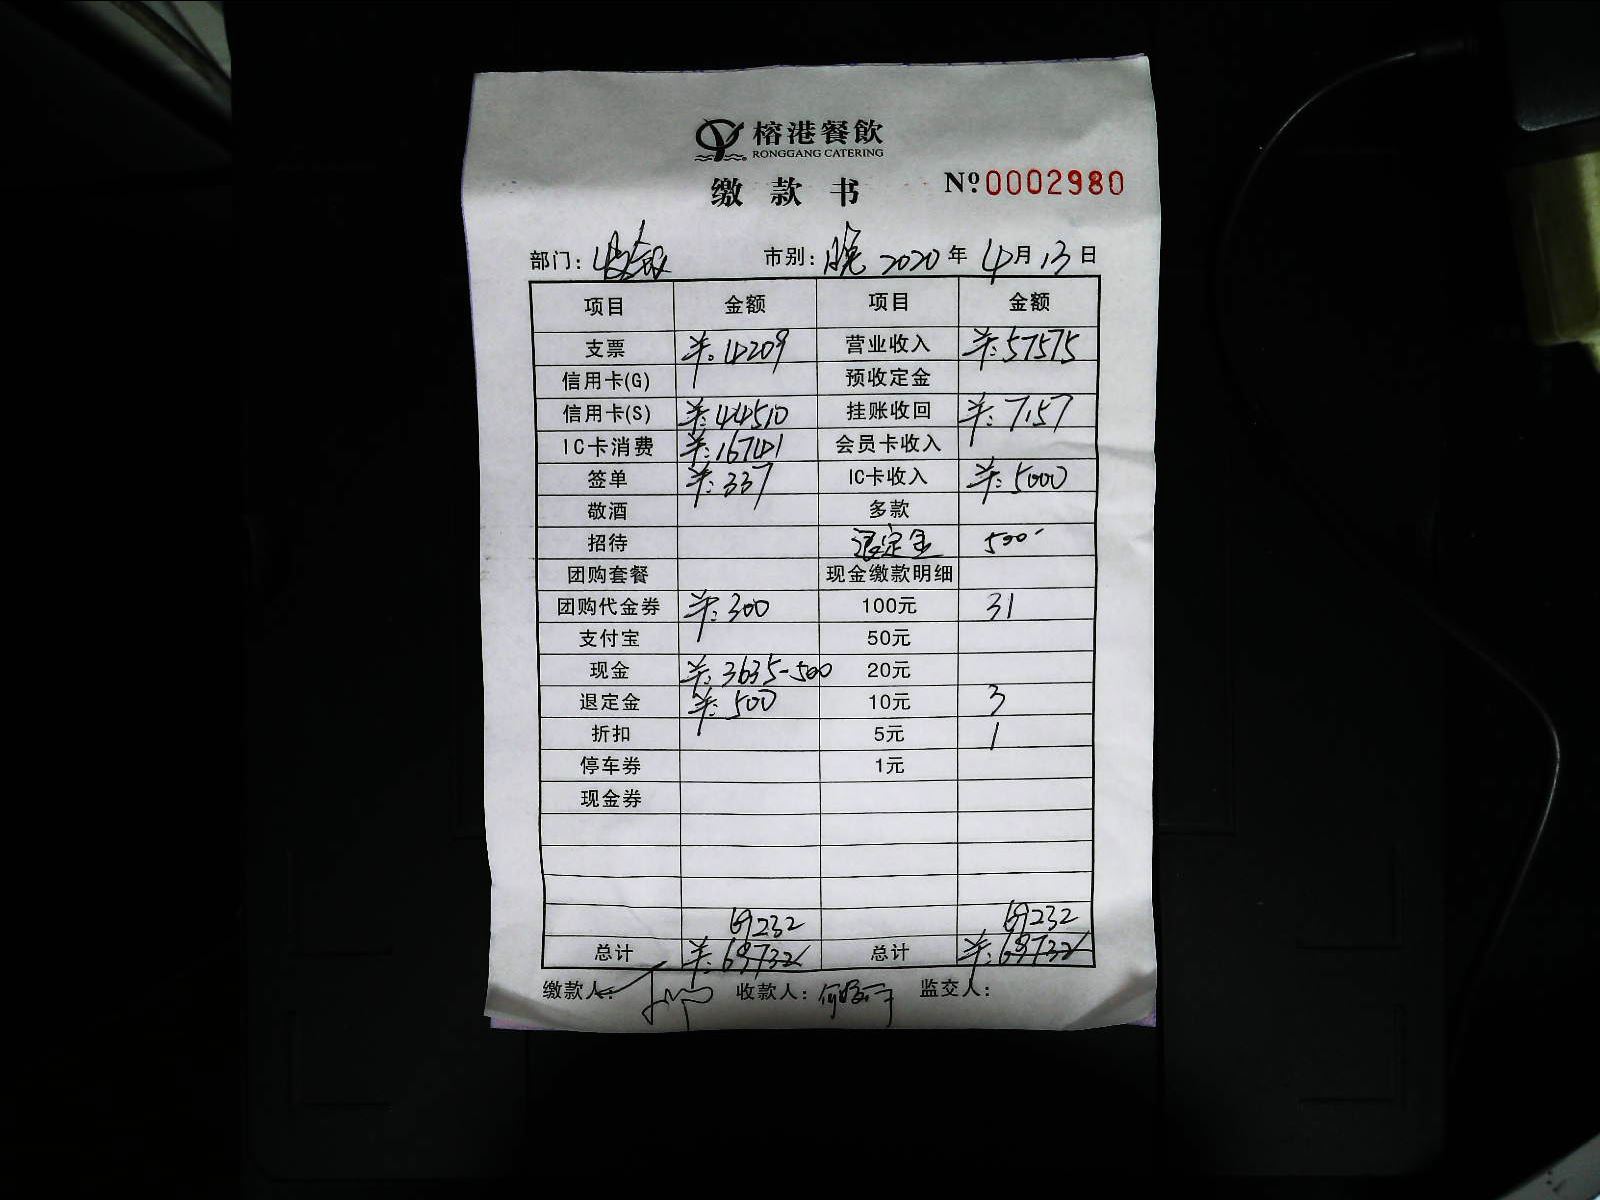 榕港餐飲
RONGGANG CATERING
缴款书 №0002980
部门: 收银 市别: 晚 2020年 4月 13日
项目 金额 项目 金额
支票 ¥: 4209 营业收入 ¥: 57575
信用卡(G) 预收定金
信用卡(S) ¥: 44510 挂账收回 ¥: 7157
IC卡消费 ¥: 16741 会员卡收入
签单 ¥: 337 IC卡收入 ¥: 5000
敬酒 多款
招待 退定金 500-
团购套餐 现金缴款明细
团购代金券 ¥: 300 100元 31
支付宝 50元
现金 ¥: 3635-500 20元
退定金 ¥: 500 10元 3
折扣 5元 1
停车券 1元
现金券
69232 69232
总计 ¥: 69732 总计 ¥: 69732
缴款人: 收款人: 监交人: